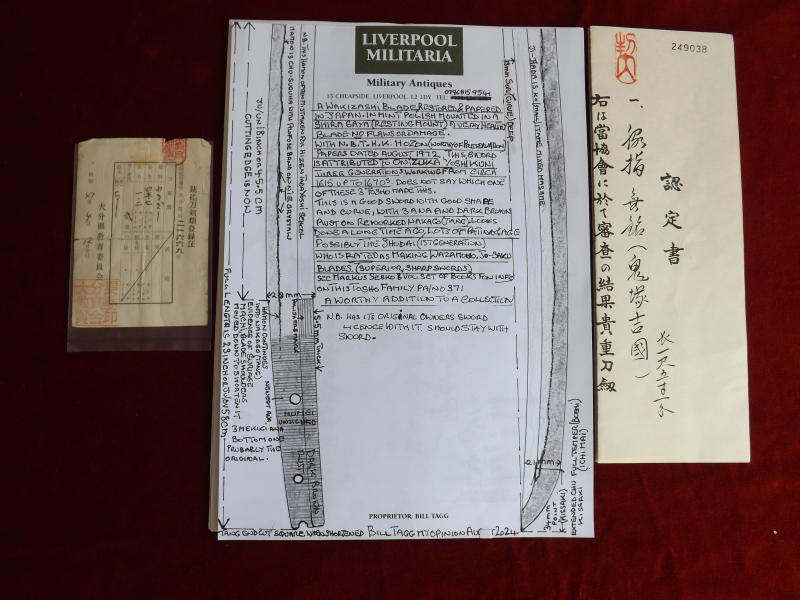 LIVERPOOL
MILITARIA
Military Antiques
15 CHEAPSIDE, LIVERPOOL L2 2DY TEL
A WAKIZASHI BLADE, RESTORED & PAPERED
IN JAPAN. IN MINT POLISH MOUNTED IN A
SHIRA SAYA (RESTING MOUNT) A VERY HEALTHY
BLADE NO FLAWS OR DAMAGE.
WITH N.B.T.H.K. HOZON (WORTHY OF PRESERVATION)
PAPERS DATED AUGUST 1972. THIS SWORD
IS ATTRIBUTED TO ONIZUKA YOSHIKUNI
THREE GENERATIONS WORKING FROM CIRCA
1615 UP TO 1670S DOES NOT SAY WHICH ONE
OF THESE 3 TOSHO MADE THIS.
THIS IS A GOOD SWORD WITH GOOD SHAPE
AND CURVE, WITH 3 ANA AND DARK BROWN
RUST ON REWORKED NAKAGO (TANG) LOOKS
DONE A LONG TIME AGO, LOTS OF PATINA & AGE
POSSIBLY THE SHODAI (1ST GENERATION)
WHO IS RATED AS MAKING WAZAMONO, JO-SAKU
BLADES, (SUPERIOR, SHARP SWORDS)
SEE MARKUS SESKO 3 VOL SET OF BOOKS FOR INFO
ON THIS TOSHO FAMILY PA/NO 371
A WORTHY ADDITION TO A COLLECTION
N.B. HAS ITS ORIGINAL OWNERS SWORD
LICENCE WITH IT. SHOULD STAY WITH
SWORD.
JU/UN 18 INCH OR 45.5 CM
CUTTING EDGE IS NOW
FULL LENGTH IS 23 INCH OR JU/UN 58 CM
HAMON CONTINUES
INTO NAKAGO (TANG)
EVIDENCE OF SURIAGE
MACHI, BLADE SHOULDERS
MOVED DOWN TO SHORTEN IT
3 MEKUGI ANA
BOTTOM ONE
PROBABLY THE
ORIGINAL.
NEWEST ANA
5.5MM THICK
MUMEI
UNSIGNED
DARK BROWN
RUST
21MM
34MM
POINT
(KISSAKI)
EXTENDED CHU
KISSAKI
FULL TEMPER (BOSHI)
(ICHIMAI)
PROPRIETOR: BILL TAGG
TANG END CUT SQUARE WHEN SHORTENED BILL TAGG MY OPINION AUG 2024
249038
認定書
一、脇指 無銘(鬼塚吉國)
長一尺五寸一分
右は當協會に於て審査の結果貴重刀剱
銃砲刀剣類登録証
大分県教育委員会